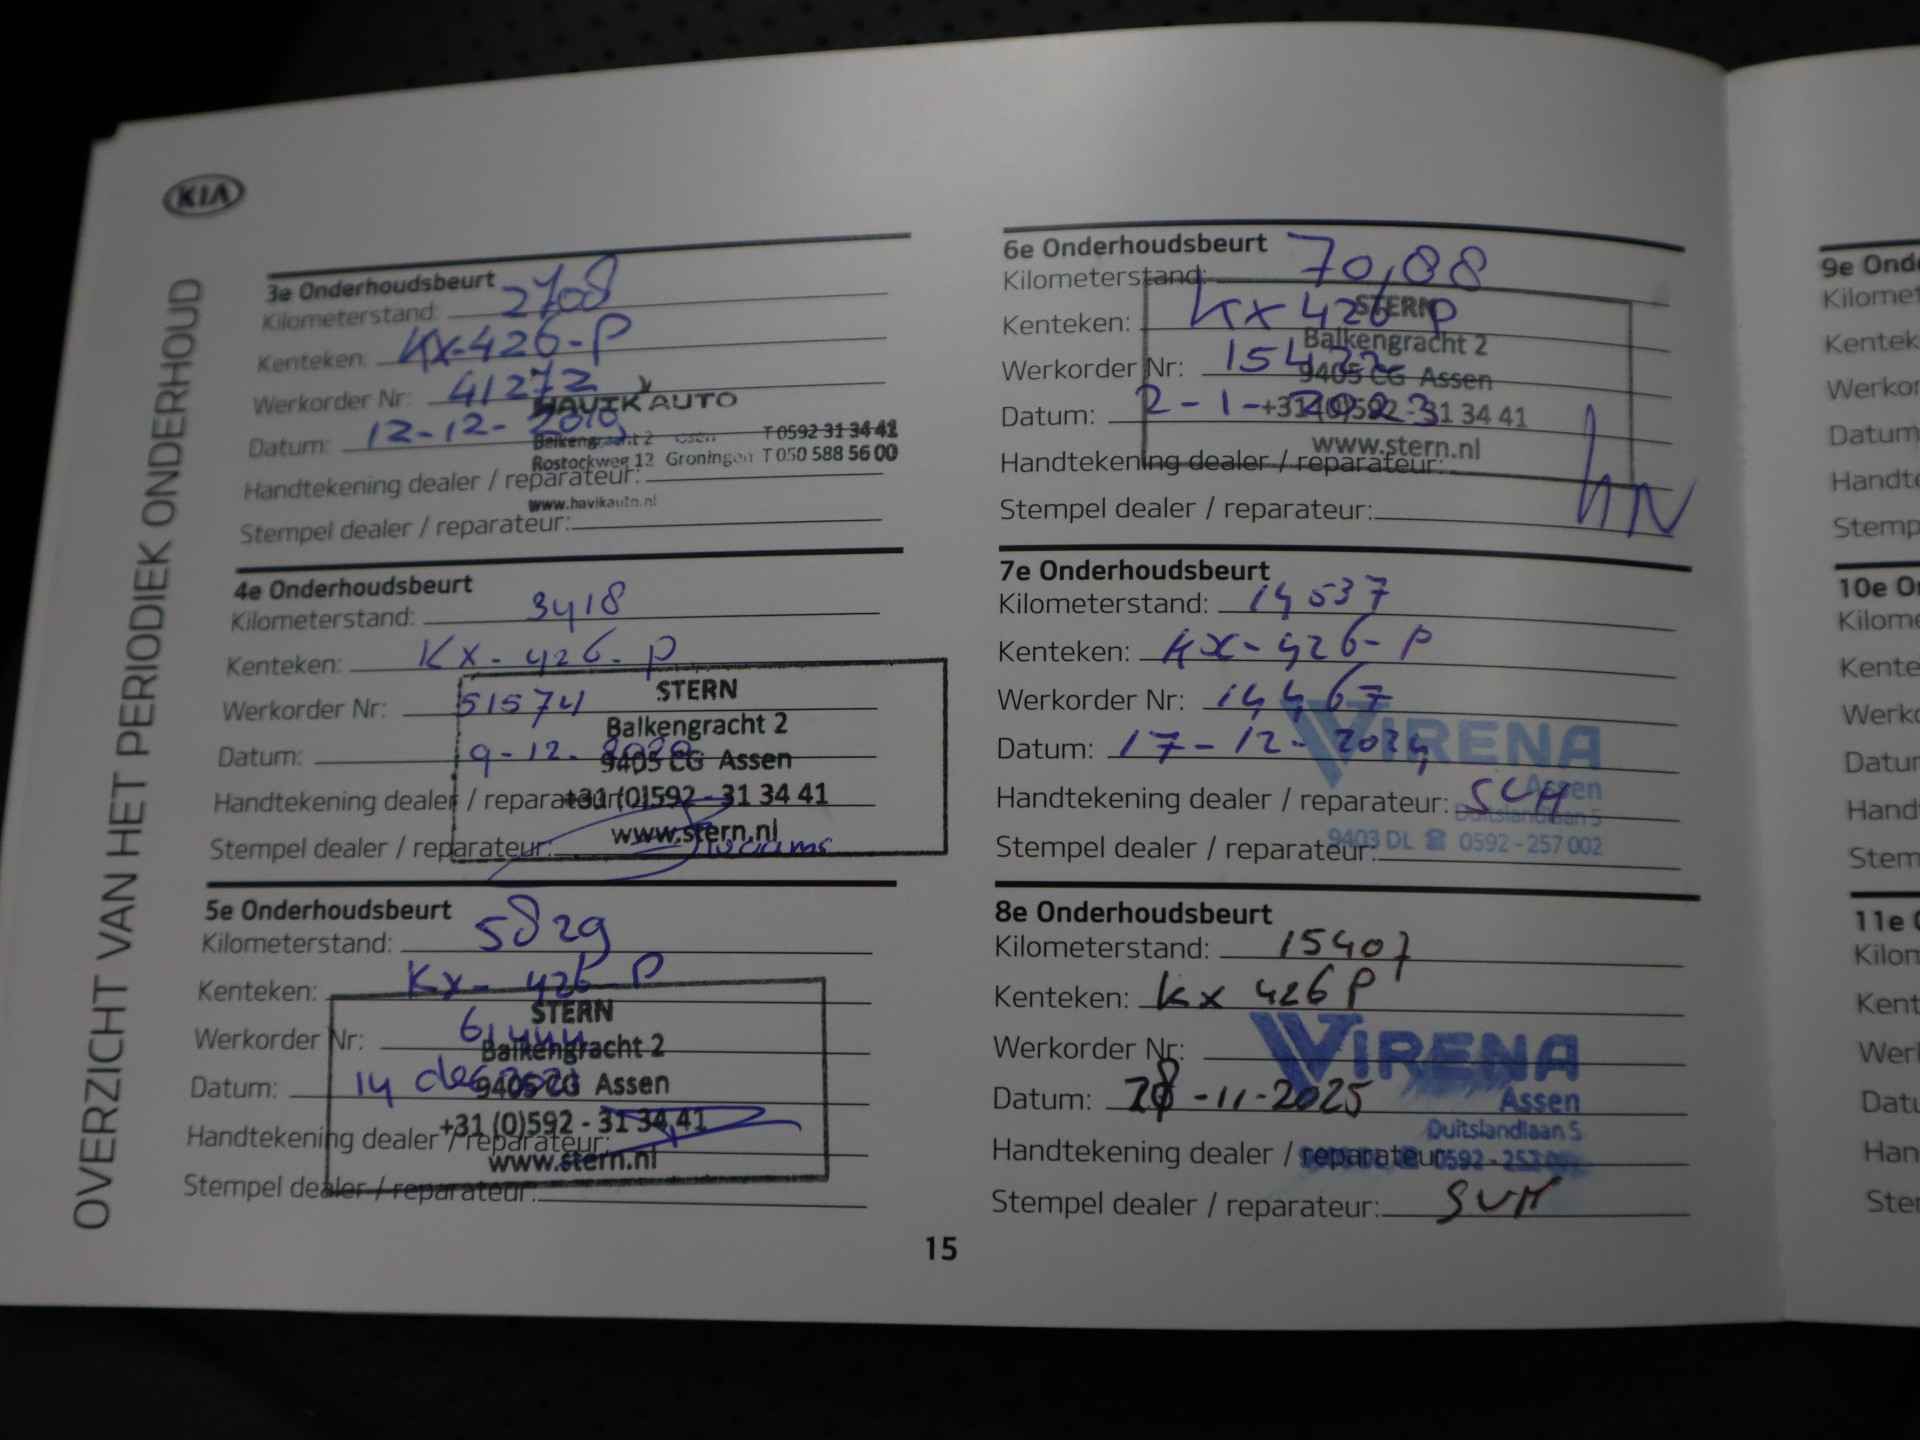 KIA
OVERZICHT VAN HET PERIODIEK ONDERHOUD
3e Onderhoudsbeurt
Kilometerstand: 2708
Kenteken: KX-426-P
Werkorder Nr: 41272
Datum: 12-12-2019
HAVIK AUTO
Balkengracht 2 T 0592 31 34 41
Rostockweg 12 Groningen T 050 588 56 00
Handtekening dealer / reparateur:
www.havikauto.nl
Stempel dealer / reparateur:
4e Onderhoudsbeurt
Kilometerstand: 3418
Kenteken: KX-426-P
Werkorder Nr: 51574
Datum: 9-12-2020
Handtekening dealer / reparateur:
Stempel dealer / reparateur:
STERN
Balkengracht 2
9405 CG Assen
+31 (0)592 - 31 34 41
www.stern.nl
5e Onderhoudsbeurt
Kilometerstand: 5829
Kenteken: KX-426-P
Werkorder Nr: 61444
Datum: 14 dec 2021
Handtekening dealer / reparateur:
Stempel dealer / reparateur:
STERN
Balkengracht 2
9405 CG Assen
+31 (0)592 - 31 34 41
www.stern.nl
6e Onderhoudsbeurt
Kilometerstand: 70,88
Kenteken: KX 426 P
Werkorder Nr: 15422
Datum: 2-1-2023
Handtekening dealer / reparateur:
Stempel dealer / reparateur:
STERN
Balkengracht 2
9405 CG Assen
+31 (0)592 - 31 34 41
www.stern.nl
7e Onderhoudsbeurt
Kilometerstand: 14537
Kenteken: KX-426-P
Werkorder Nr: 14467
Datum: 17-12-2024
Handtekening dealer / reparateur: SUH
Stempel dealer / reparateur:
VIRENA
Assen
Duitslandlaan 5
9403 DL ☎ 0592 - 257 002
8e Onderhoudsbeurt
Kilometerstand: 15407
Kenteken: KX 426 P
Werkorder Nr:
Datum: 28-11-2025
Handtekening dealer / reparateur:
Stempel dealer / reparateur: SUH
VIRENA
Assen
Duitslandlaan 5
15
9e Onde
Kilomet
Kentek
Werkor
Datum
Handte
Stemp
10e O
Kilome
Kente
Werko
Datu
Hand
Stem
11e
Kilon
Kent
Werl
Datu
Han
Ste